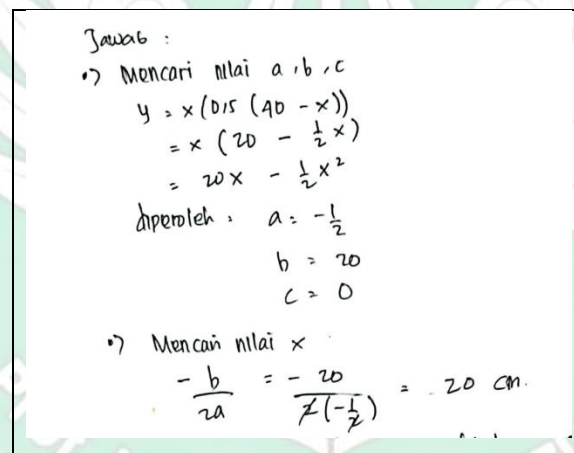 Jawab :
•) Mencari nilai a, b, c
y = x(0,5 (40 - x))
= x (20 - 1/2 x)
= 20x - 1/2 x²
diperoleh : a = -1/2
b = 20
c = 0
•) Mencari nilai x
-b/2a = -20/2(-1/2) = 20 cm.